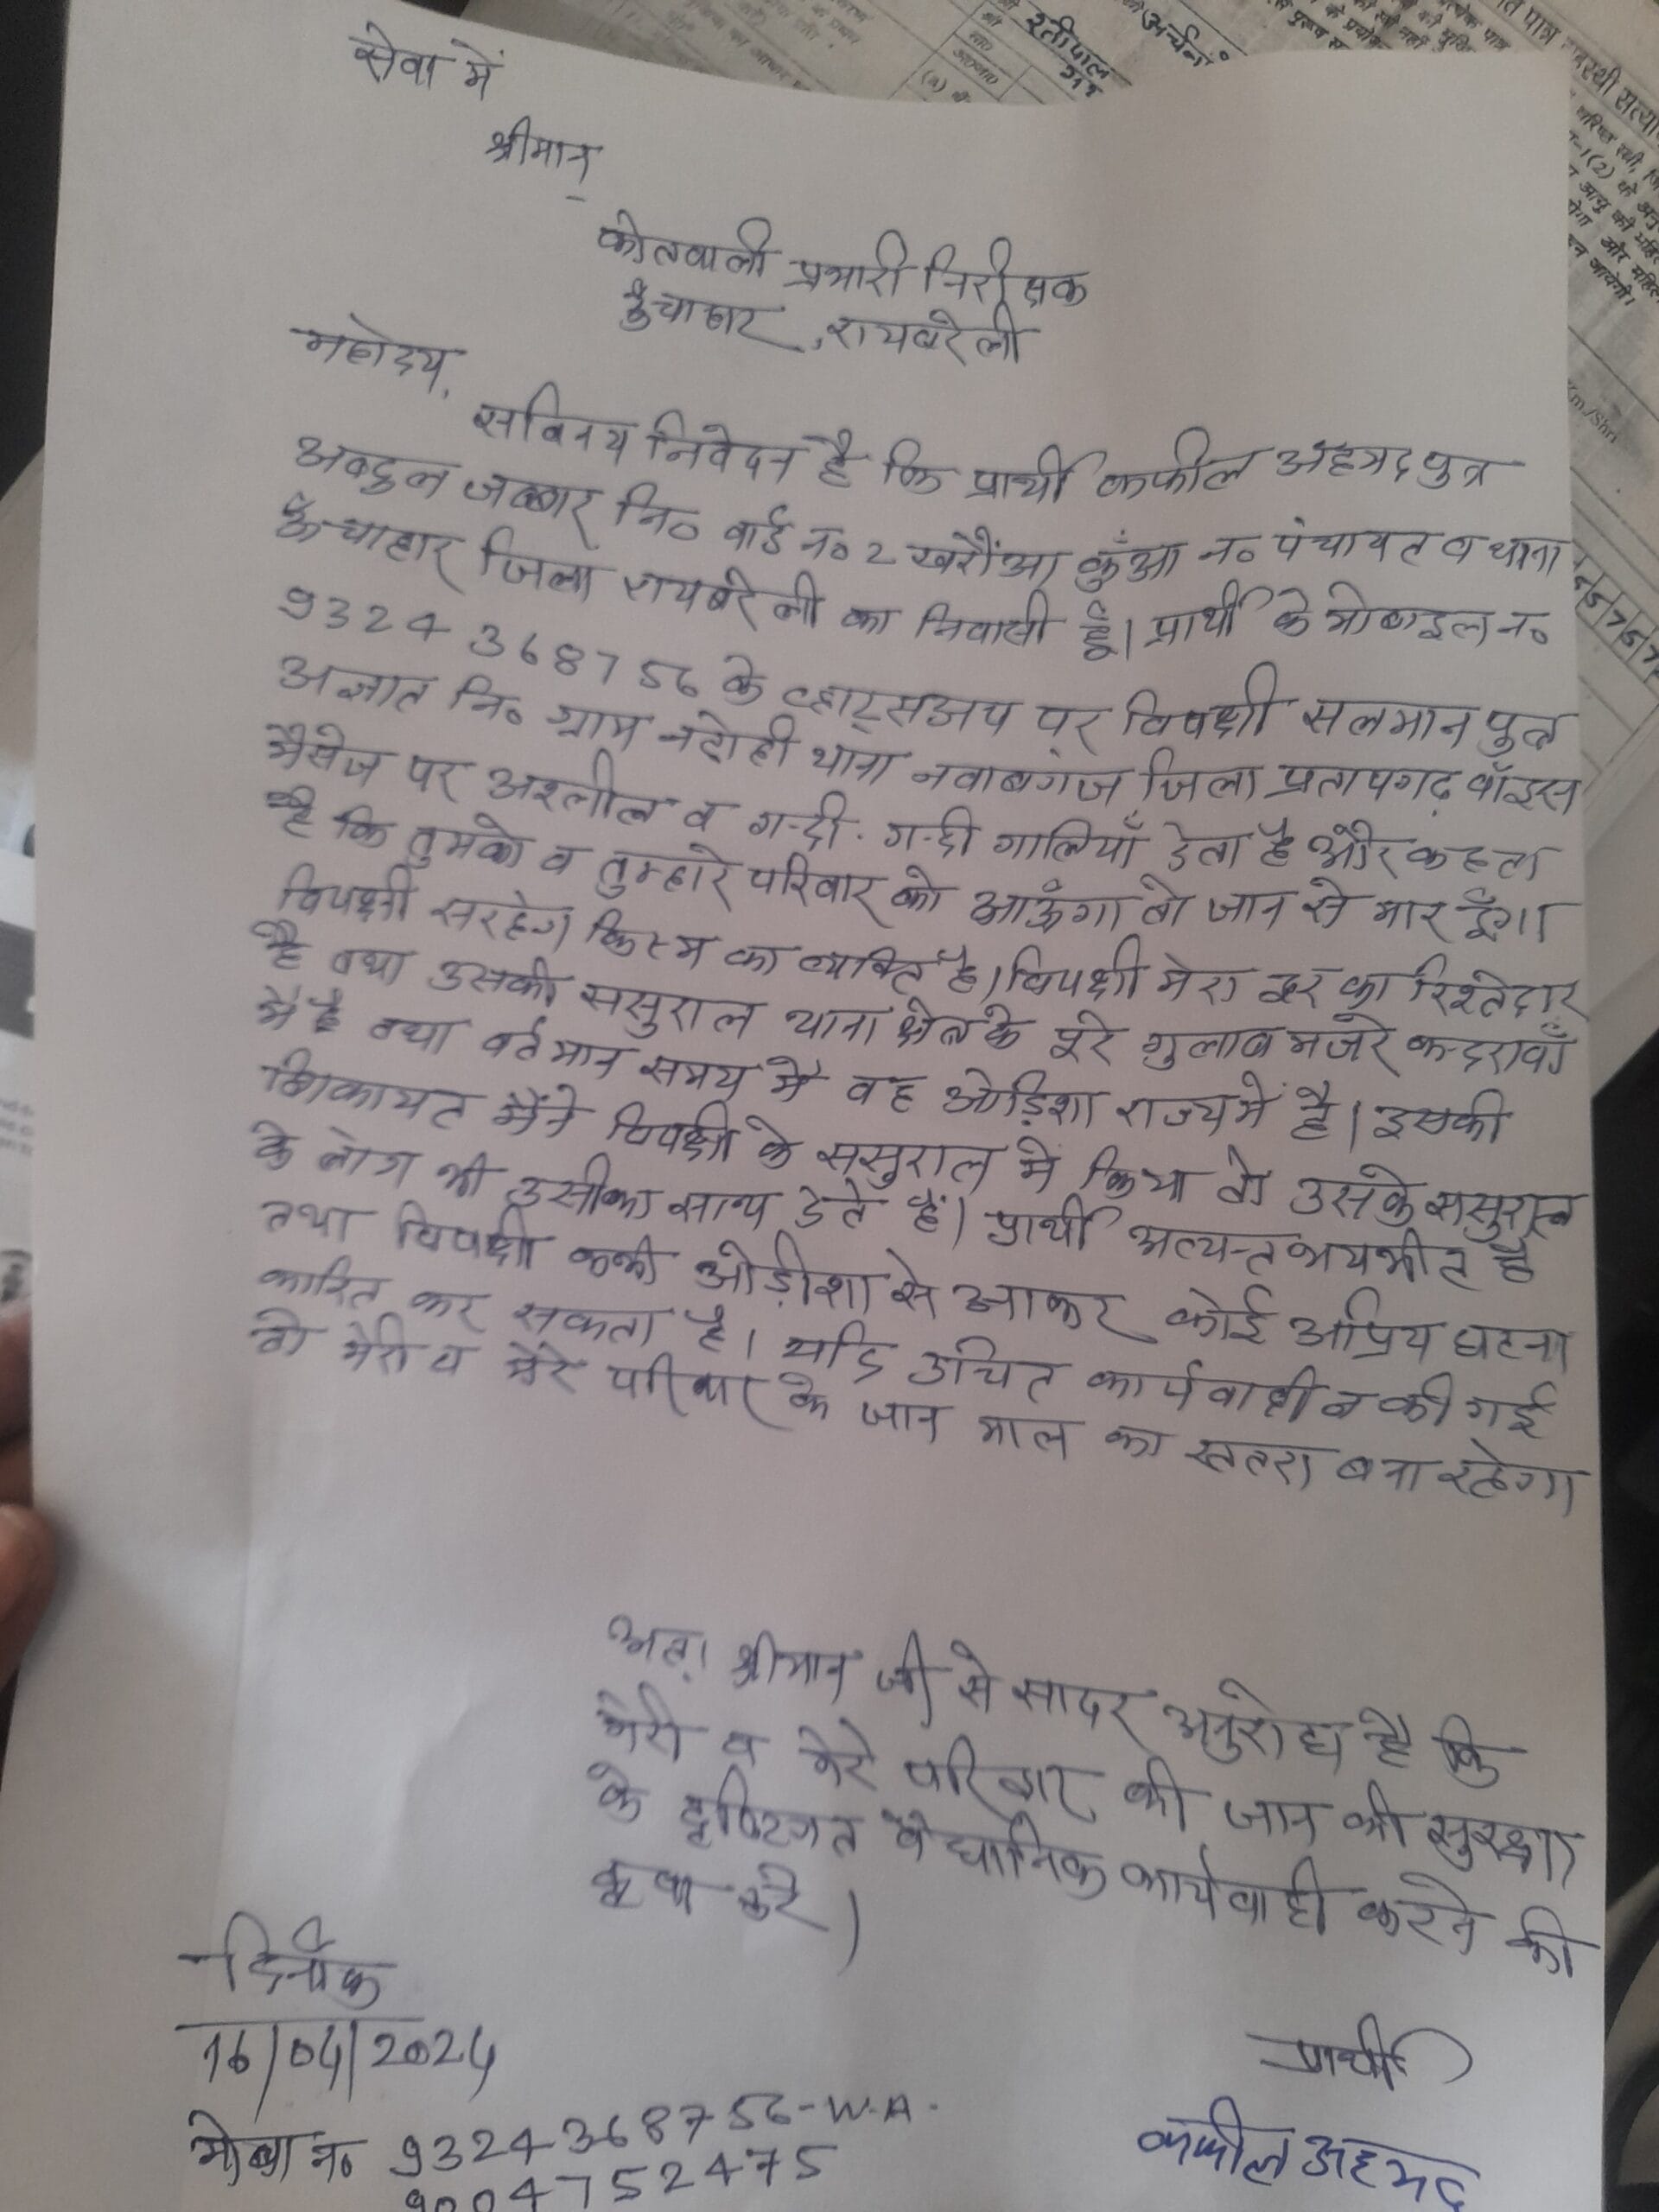 सेवा में
श्रीमान्
कोतवाली प्रभारी निरीक्षक
ऊँचाहार, रायबरेली
महोदय,
सविनय निवेदन है कि प्रार्थी कफील अहमद पुत्र
अब्दुल जब्बार नि० वार्ड न० 2 खरौंआ कुँआ न० पंचायत व थाना
ऊँचाहार जिला रायबरेली का निवासी हूँ। प्रार्थी के मोबाइल न०
9324368756 के व्हाट्सअप पर विपक्षी सलमान पुत्र
अज्ञात नि० ग्राम थाना नवाबगंज जिला प्रतापगढ़ वॉइस
मैसेज पर अश्लील व गन्दी-गन्दी गालियाँ देता है और कहता
है कि तुमको व तुम्हारे परिवार को आऊँगा तो जान से मार दूँगा।
विपक्षी सरहंग किस्म का व्यक्ति है। विपक्षी मेरा दूर का रिश्तेदार
है तथा उसकी ससुराल थाना क्षेत्र के पूरे गुलाब मजरे कन्दरावाँ
में है तथा वर्तमान समय में वह ओड़िशा राज्य में है। इसकी
शिकायत मैंने विपक्षी के ससुराल में किया तो उसके ससुराल
के लोग भी उसीका साथ देते हैं। प्रार्थी अत्यन्त भयभीत है
तथा विपक्षी कभी ओड़ीशा से आकर कोई अप्रिय घटना
कारित कर सकता है। यदि उचित कार्यवाही न की गई
तो मेरी व मेरे परिवार के जान माल का खतरा बना रहेगा
अतः श्रीमान जी से सादर अनुरोध है कि
मेरी व मेरे परिवार की जान की सुरक्षा
के दृष्टिगत वैधानिक कार्यवाही करने की
कृपा करे।
दिनाँक
16/04/2024
प्रार्थी
मोबा न० 9324368756-W.A.
9004752475
कफील अहमद
रतीपाल
अर्चना